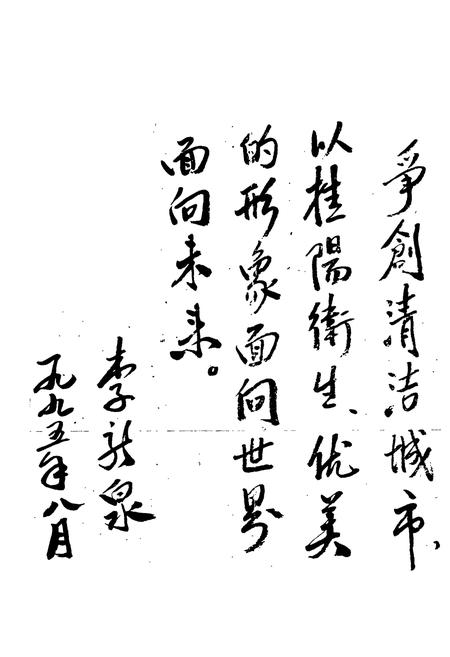 爭創清洁城市、
以桂陽衛生、优美
的形象面向世界
面向未来。
李龙泉
一九九五年八月